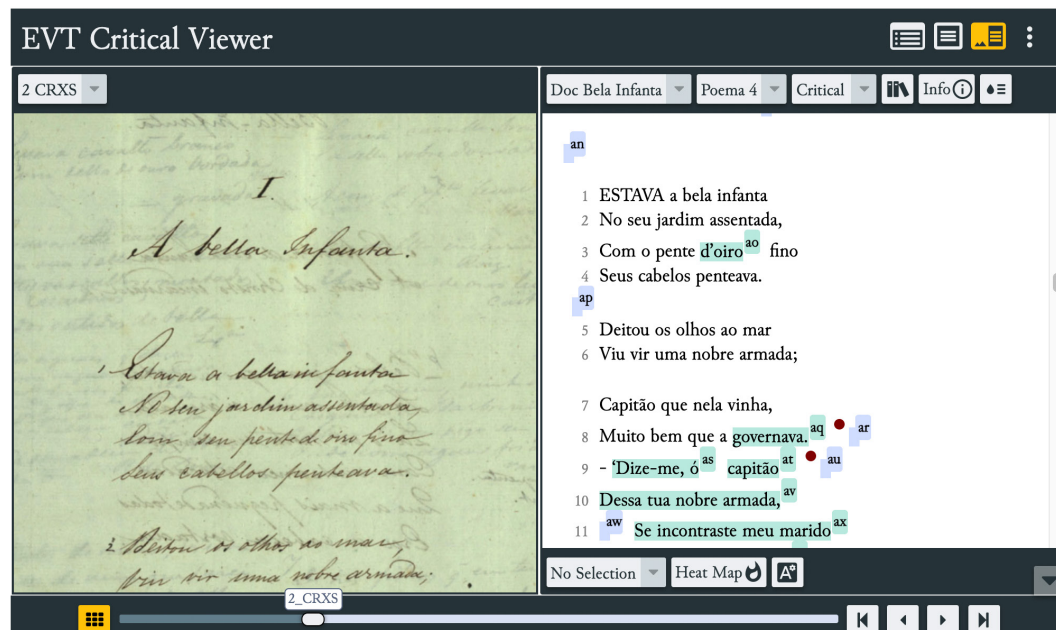 EVT Critical Viewer
2 CRXS
I.
A bella Infanta.
1 Estava a bella infanta
No seu jardim assentada,
Com seu pente de oiro fino
Seus cabellos penteava.
2 Deitou os olhos ao mar,
Viu vir uma nobre armada;
Doc Bela Infanta
Poema 4
Critical
Info
an
1 ESTAVA a bela infanta
2 No seu jardim assentada,
3 Com o pente d’oiro ao fino
4 Seus cabelos penteava.
ap
5 Deitou os olhos ao mar
6 Viu vir uma nobre armada;
7 Capitão que nela vinha,
8 Muito bem que a governava. aq ar
9 - ‘Dize-me, ó as capitão at au
10 Dessa tua nobre armada, av
11 aw Se incontraste meu marido ax
No Selection
Heat Map
A
2_CRXS